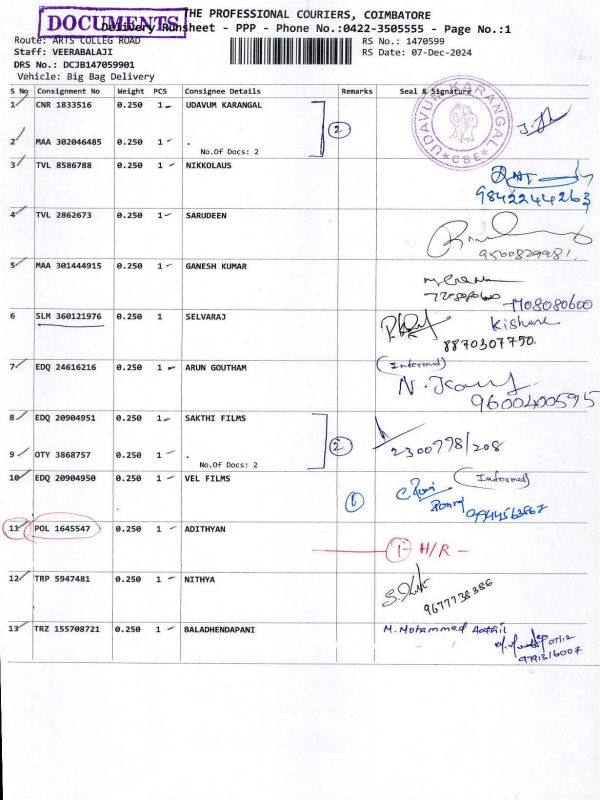 DOCUMENTS
THE PROFESSIONAL COURIERS, COIMBATORE
Delivery Runsheet - PPP - Phone No.:0422-3505555 - Page No.:1
Route: ARTS COLLEG ROAD RS No.: 1470599
Staff: VEERABALAJI RS Date: 07-Dec-2024
DRS No.: DCJB147059901
Vehicle: Big Bag Delivery
S No Consignment No Weight PCS Consignee Details Remarks Seal & Signature
1 CNR 1833516 0.250 1 UDAVUM KARANGAL
UDAVUM KARANGAL
CBE
2 MAA 302046485 0.250 1 .
2
No.Of Docs: 2
3 TVL 8586788 0.250 1 NIKKOLAUS
9842244263
4 TVL 2862673 0.250 1 SARUDEEN
9560829981.
5 MAA 301444915 0.250 1 GANESH KUMAR
7708080600
6 SLM 360121976 0.250 1 SELVARAJ
Kishore
8870307750.
7 EDQ 24616216 0.250 1 ARUN GOUTHAM
(Informed)
9600400595
8 EDQ 20904951 0.250 1 SAKTHI FILMS
2
2300798/208
9 OTY 3868757 0.250 1 .
No.Of Docs: 2
10 EDQ 20904950 0.250 1 VEL FILMS
(Informed)
1
11 POL 1645547 0.250 1 ADITHYAN
1 - H/R -
12 TRP 5947481 0.250 1 NITHYA
9677738386
13 TRZ 155708721 0.250 1 BALADHENDAPANI
M. Mohammed Aathil
07/12
9791316007